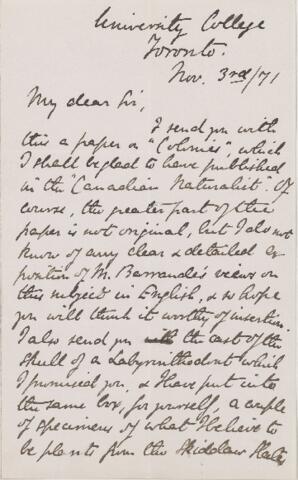 University College
Toronto.
Nov. 3rd/71
My dear Sir,
I send you with
this a paper on "Colonies", which
I shall be glad to have published
in the "Canadian Naturalist". Of
course, the greater part of the
paper is not original, but I do not
know of any clear & detailed ex-
position of M. Barrande's views on
this subject in English, & so hope
you will think it worthy of insertion.
I also send you the cast of the
Skull of a Labyrinthodont which
I promised you, & I have put into
the same box, for yourself, a couple
of specimens of what I believe to
be plants from the Skiddaw Slates